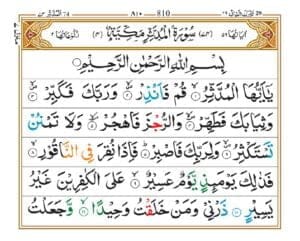 ٨١٠ 810
سُوْرَةُ الْمُدَّثِّرِ مَكِّيَّةٌ
بِسْمِ اللّٰهِ الرَّحْمٰنِ الرَّحِيْمِ
يٰۤاَيُّهَا الْمُدَّثِّرُ ۙ﴿۱﴾ قُمْ فَاَنْذِرْ ۙ﴿۲﴾ وَرَبَّكَ فَكَبِّرْ ۙ﴿۳﴾
وَثِيَابَكَ فَطَهِّرْ ۙ﴿۴﴾ وَالرُّجْزَ فَاهْجُرْ ۙ﴿۵﴾ وَلَا تَمْنُنْ
تَسْتَكْثِرُ ۙ﴿۶﴾ وَلِرَبِّكَ فَاصْبِرْ ؕ﴿۷﴾ فَاِذَا نُقِرَ فِى النَّاقُوْرِ ۙ﴿۸﴾
فَذٰلِكَ يَوْمَئِذٍ يَّوْمٌ عَسِيْرٌ ۙ﴿۹﴾ عَلَى الْكٰفِرِيْنَ غَيْرُ
يَسِيْرٍ ﴿۱۰﴾ ذَرْنِىْ وَمَنْ خَلَقْتُ وَحِيْدًا ۙ﴿۱۱﴾ وَّجَعَلْتُ